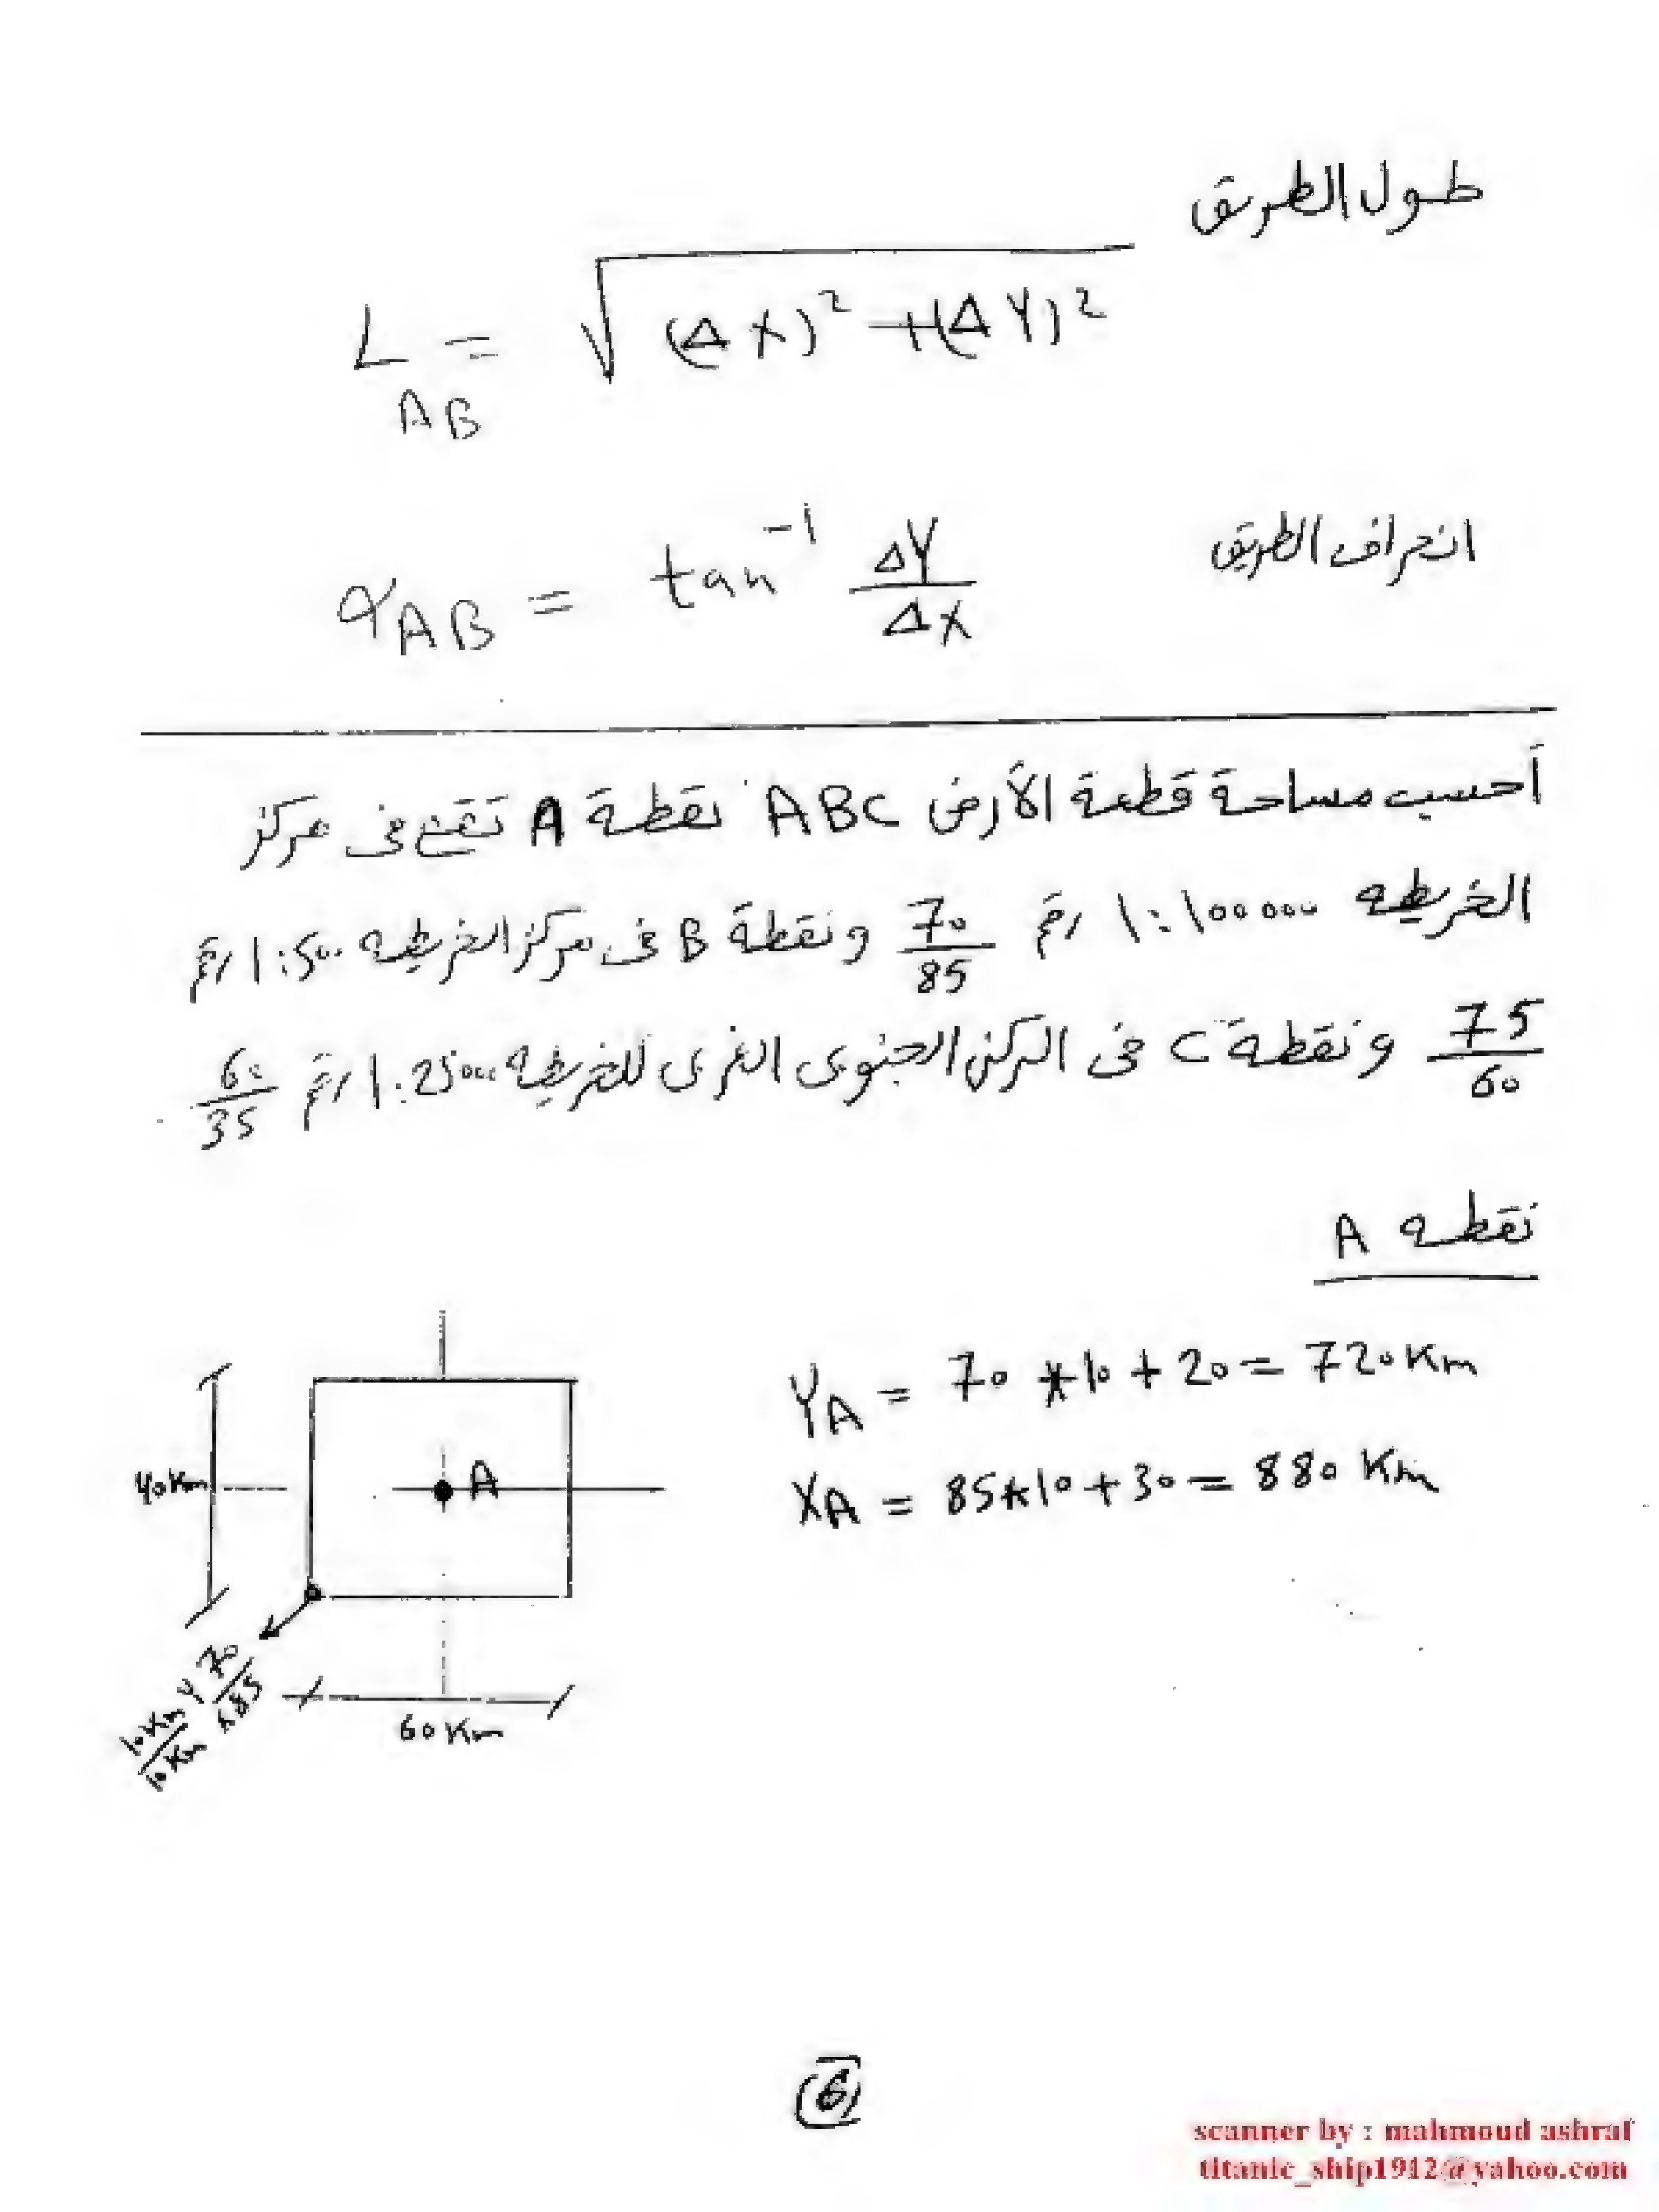 طول الطريق
L AB = √(ΔX)² + (ΔY)²
انحراف الطريق
α AB = tan⁻¹ ΔY/ΔX
أحسب مساحة قطعة الأرض ABC نقطة A تقع فى مركز
الخريطه 1:100000 رقم 70/85 ونقطة B فى مركز الخريطه 1:500 رقم
75/60 ونقطة C فى الركن الجنوبى الغربى للخريطه 1:25000 رقم 60/35
نقطه A
YA = 70 * 10 + 20 = 720 Km
XA = 85 * 10 + 30 = 880 Km
40 Km
A
70/85
10 Km/10 Km
60 Km
6
scanner by : mahmoud ashraf
titanic_ship1912@yahoo.com